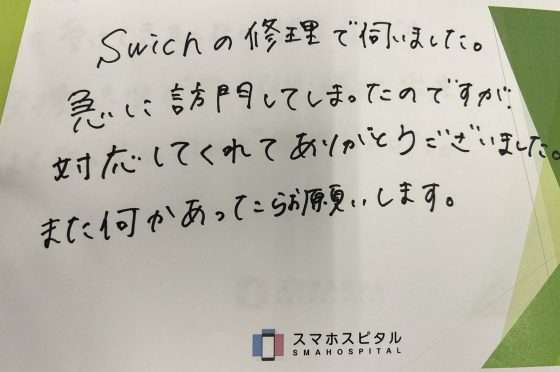 Swichの修理で伺いました。
急に訪問してしまったのですが、
対応してくれてありがとうございました。
また何かあったらお願いします。
スマホスピタル
SMAHOSPITAL